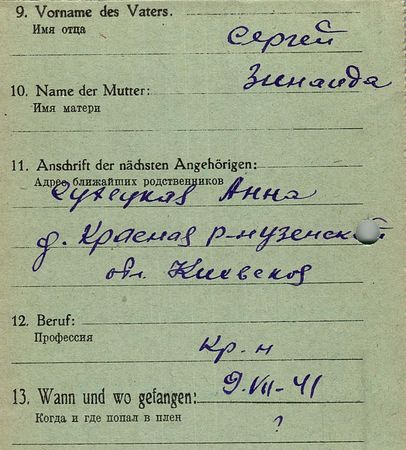 9. Vorname des Vaters.
Имя отца
Сергей
Зинаида
10. Name der Mutter:
Имя матери
11. Anschrift der nächsten Angehörigen:
Адрес ближайших родственников
Анна
д. Красная
обл. Киевской
12. Beruf:
Профессия
Кр-н
13. Wann und wo gefangen:
9.VII-41
Когда и где попал в плен
?